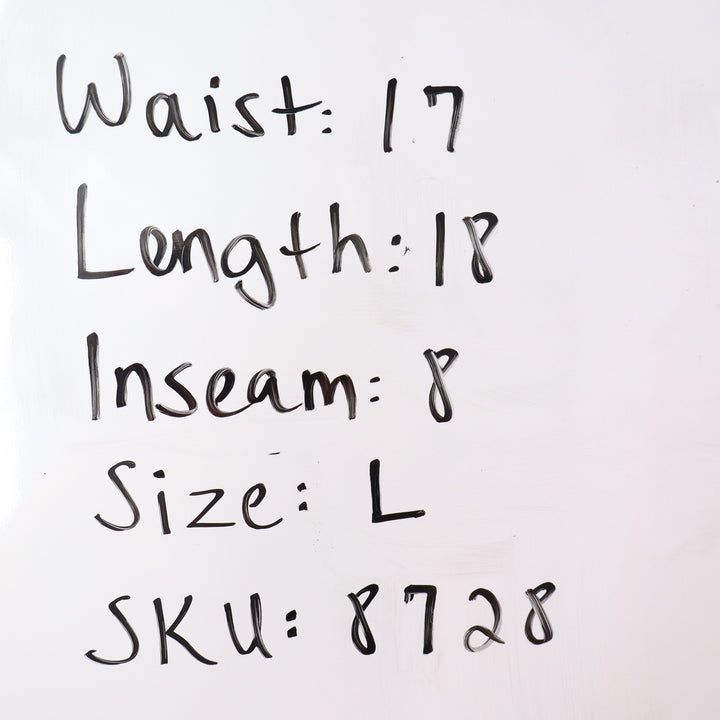 Waist: 17
Length: 18
Inseam: 8
Size: L
SKU: 8728